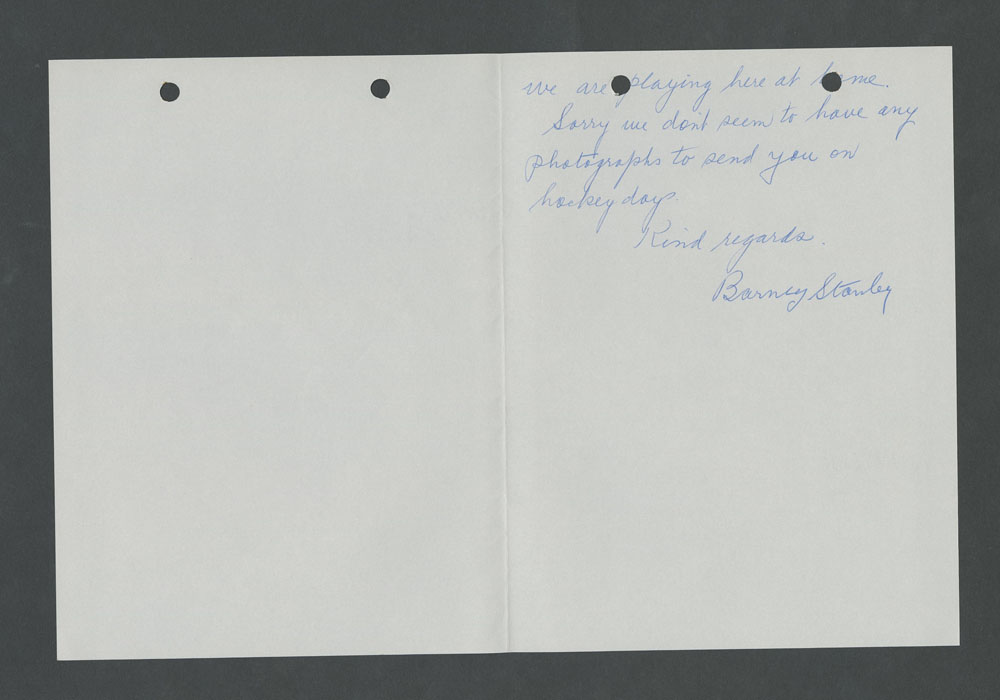 we are playing here at home.
Sorry we don't seem to have any
photographs to send you on
hockey days.
Kind regards.
Barney Stanley